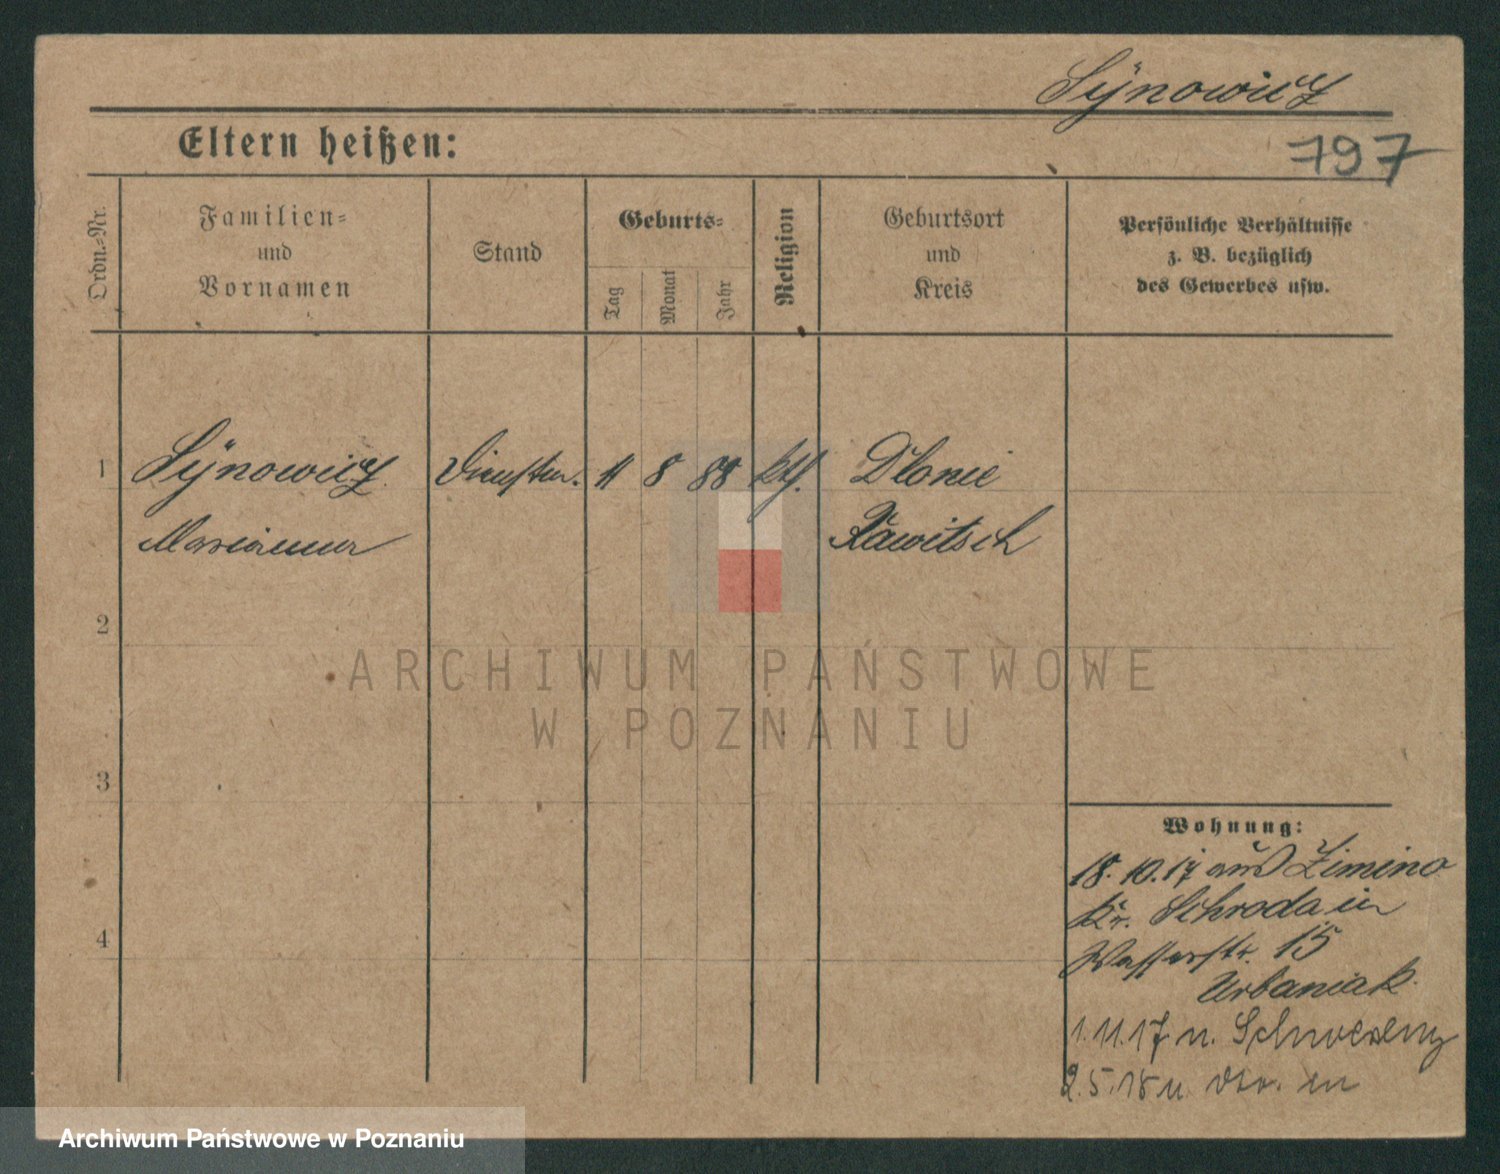 Synowicz
797
Eltern heißen:
Ordn.-Nr.
Familien-
und
Vornamen
Stand
Geburts-
Tag
Monat
Jahr
Religion
Geburtsort
und
Kreis
Persönliche Verhältnisse
z. B. bezüglich
des Gewerbes usw.
1 Synowicz Dienstm. 11 8 88 kth. Dlonie
Marianna Rawitsch
2
3
4
ARCHIWUM PAŃSTWOWE
W POZNANIU
Wohnung:
18.10.17 aus Zimino
Kr. Schroda in
Wasserstr. 15
Urbaniak.
1.11.17 n. Schwersenz
2.5.18 n. in
Archiwum Państwowe w Poznaniu